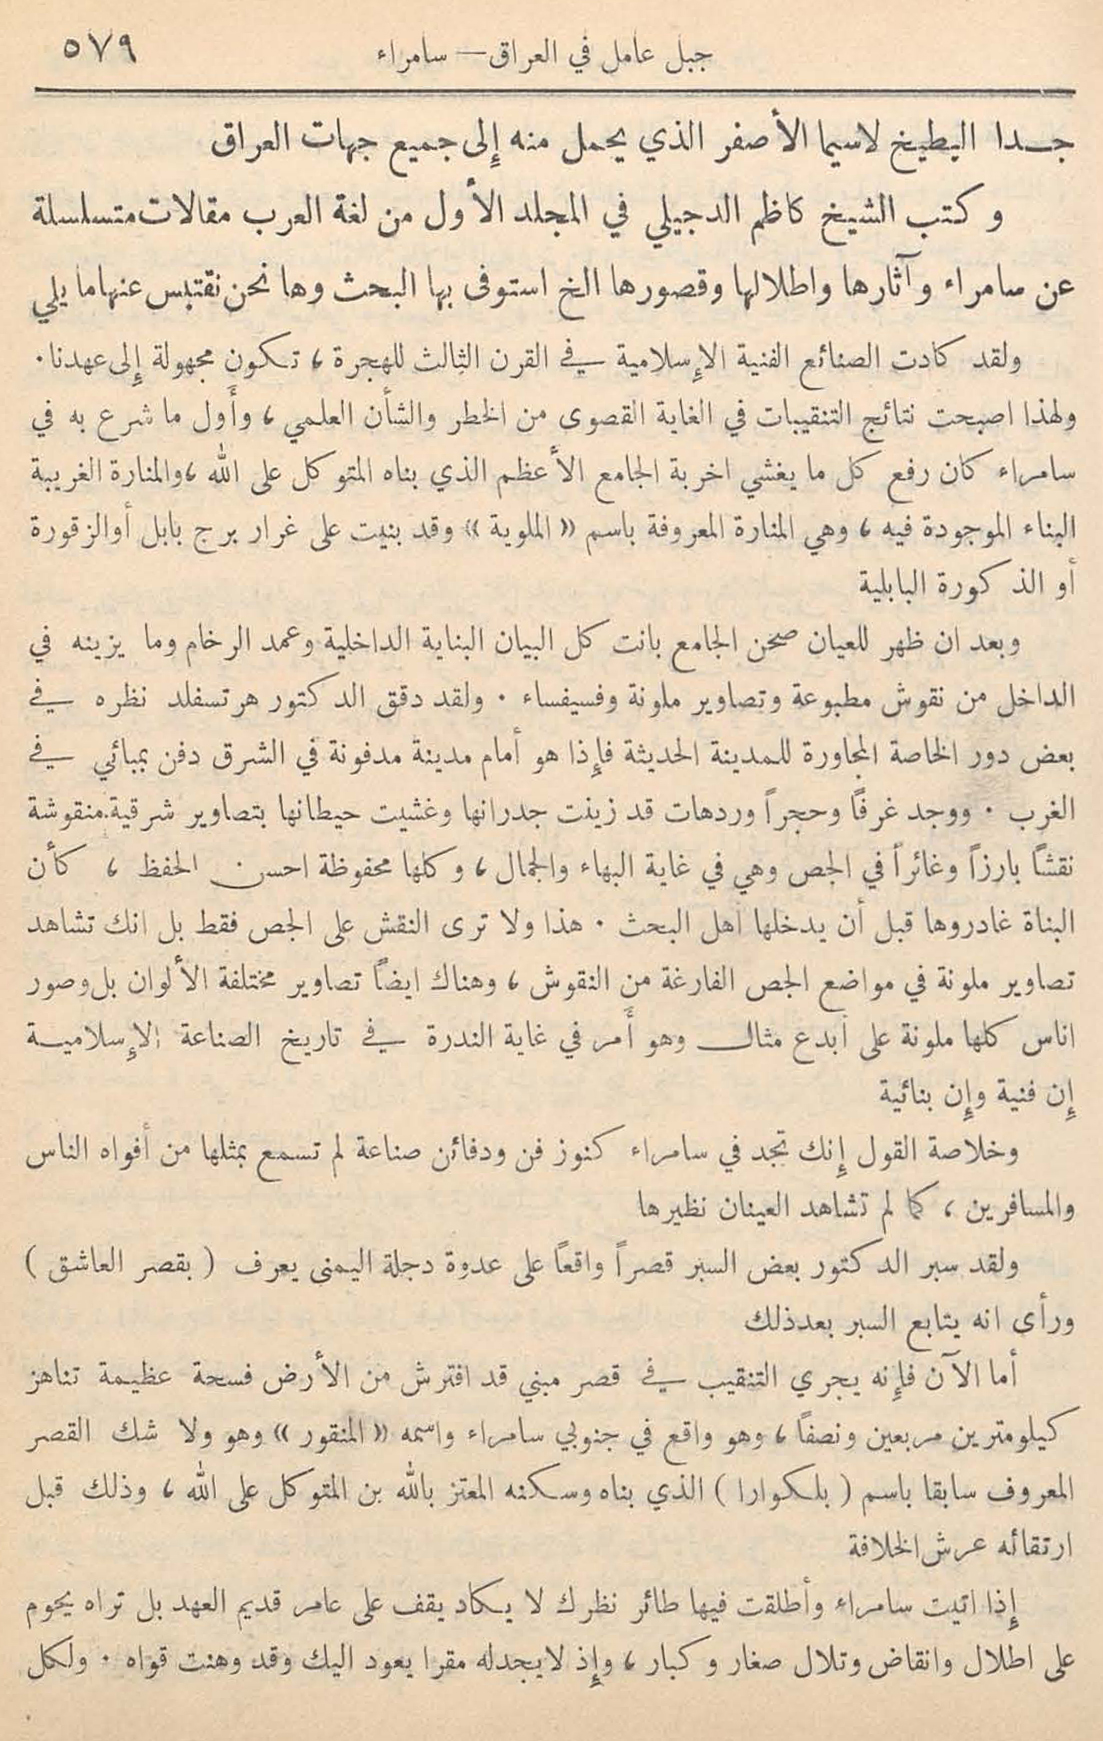 جبل عامل في العراق — سامراء ٥٧٩
جـدا البطيخ لاسيما الأصفر الذي يحمل منه إلى جميع جهات العراق
وكتب الشيخ كاظم الدجيلي في المجلد الأول من لغة العرب مقالات متسلسلة
عن سامراء وآثارها واطلالها وقصورها الخ استوفى بها البحث وها نحن نقتبس عنها ما يلي
ولقد كادت الصنائع الفنية الإسلامية في القرن الثالث للهجرة ، تكون مجهولة إلى عهدنا .
ولهذا اصبحت نتائج التنقيبات في الغاية القصوى من الخطر والشأن العلمي ، وأول ما شرع به في
سامراء كان رفع كل ما يغشي اخربة الجامع الأعظم الذي بناه المتوكل على الله ، والمنارة الغريبة
البناء الموجودة فيه ، وهي المنارة المعروفة باسم « الملوية » وقد بنيت على غرار برج بابل أو الزقورة
أو الذكورة البابلية
وبعد ان ظهر للعيان صحن الجامع بانت كل البيان البناية الداخلية وعمد الرخام وما يزينه في
الداخل من نقوش مطبوعة وتصاوير ملونة وفسيفساء . ولقد دقق الدكتور هرتسفلد نظره في
بعض دور الخاصة المجاورة للمدينة الحديثة فإذا هو أمام مدينة مدفونة في الشرق دفن بمبائي في
الغرب . ووجد غرفاً وحجراً وردهات قد زينت جدرانها وغشيت حيطانها بتصاوير شرقية منقوشة
نقشاً بارزاً وغائراً في الجص وهي في غاية البهاء والجمال ، وكلها محفوظة احسن الحفظ ، كأن
البناة غادروها قبل أن يدخلها اهل البحث . هذا ولا ترى النقش على الجص فقط بل انك تشاهد
تصاوير ملونة في مواضع الجص الفارغة من النقوش ، وهناك ايضاً تصاوير مختلفة الألوان بل وصور
اناس كلها ملونة على أبدع مثال وهو أمر في غاية الندرة في تاريخ الصناعة الإسلامية
إن فنية وإن بنائية
وخلاصة القول إنك تجد في سامراء كنوز فن ودفائن صناعة لم تسمع بمثلها من أفواه الناس
والمسافرين ، كما لم تشاهد العينان نظيرها
ولقد سبر الدكتور بعض السبر قصراً واقعاً على عدوة دجلة اليمنى يعرف ( بقصر العاشق )
ورأى انه يتابع السبر بعد ذلك
أما الآن فإنه يجري التنقيب في قصر مبني قد افترش من الأرض فسحة عظيمة تناهز
كيلومترين مربعين ونصفاً ، وهو واقع في جنوبي سامراء واسمه « المنقور » وهو ولا شك القصر
المعروف سابقا باسم ( بلكوارا ) الذي بناه وسكنه المعتز بالله بن المتوكل على الله ، وذلك قبل
ارتقائه عرش الخلافة
إذا اتيت سامراء وأطلقت فيها طائر نظرك لا يكاد يقف على عامر قديم العهد بل تراه يحوم
على اطلال وانقاض وتلال صغار وكبار ، وإذ لا يجد له مقرا يعود اليك وقد وهنت قواه . ولكل